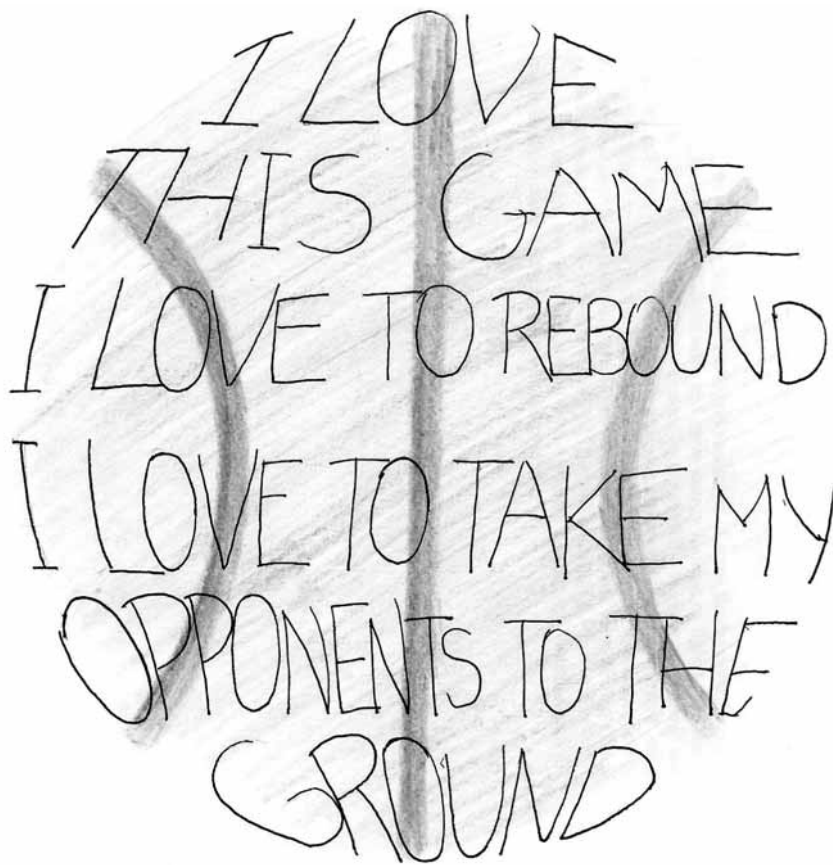 I LOVE
THIS GAME
I LOVE TO REBOUND
I LOVE TO TAKE MY
OPPONENTS TO THE
GROUND